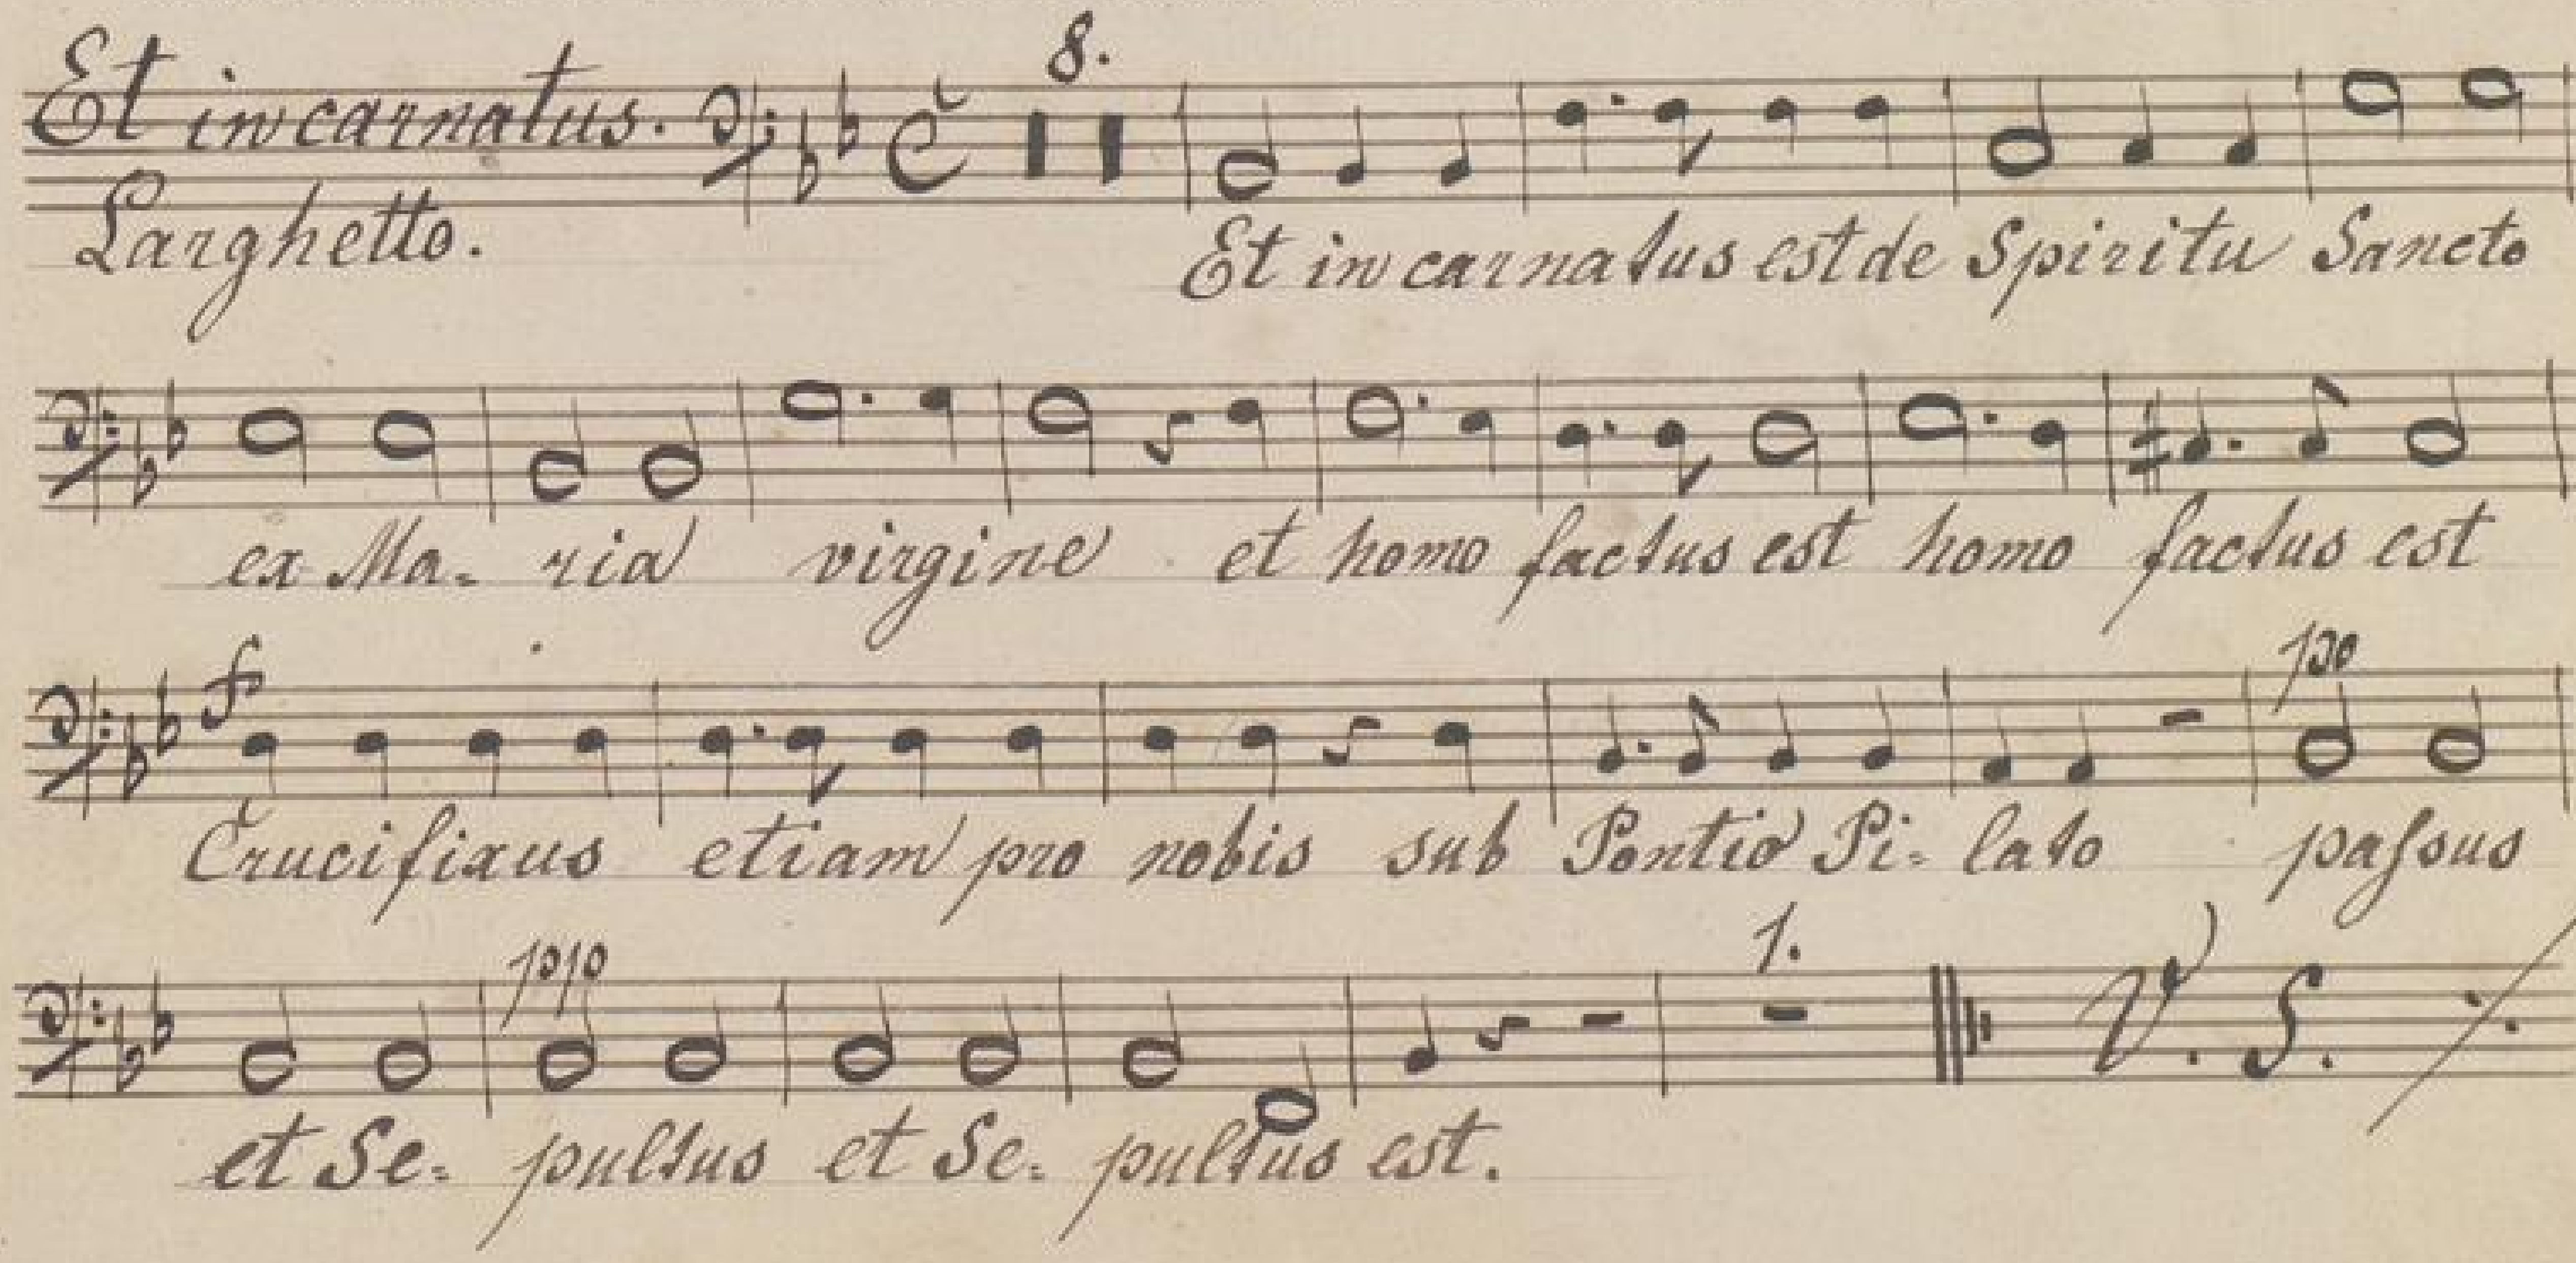 8.
Et incarnatus.
Larghetto.
Et in carnatus est de Spiritu Sancto
ex Ma= ria virgine et homo factus est homo factus est
f po
Crucifixus etiam pro nobis sub Pontio Pi= lato paſsus
ppo 1.
V. S.
et Se= pultus et Se= pultus est.